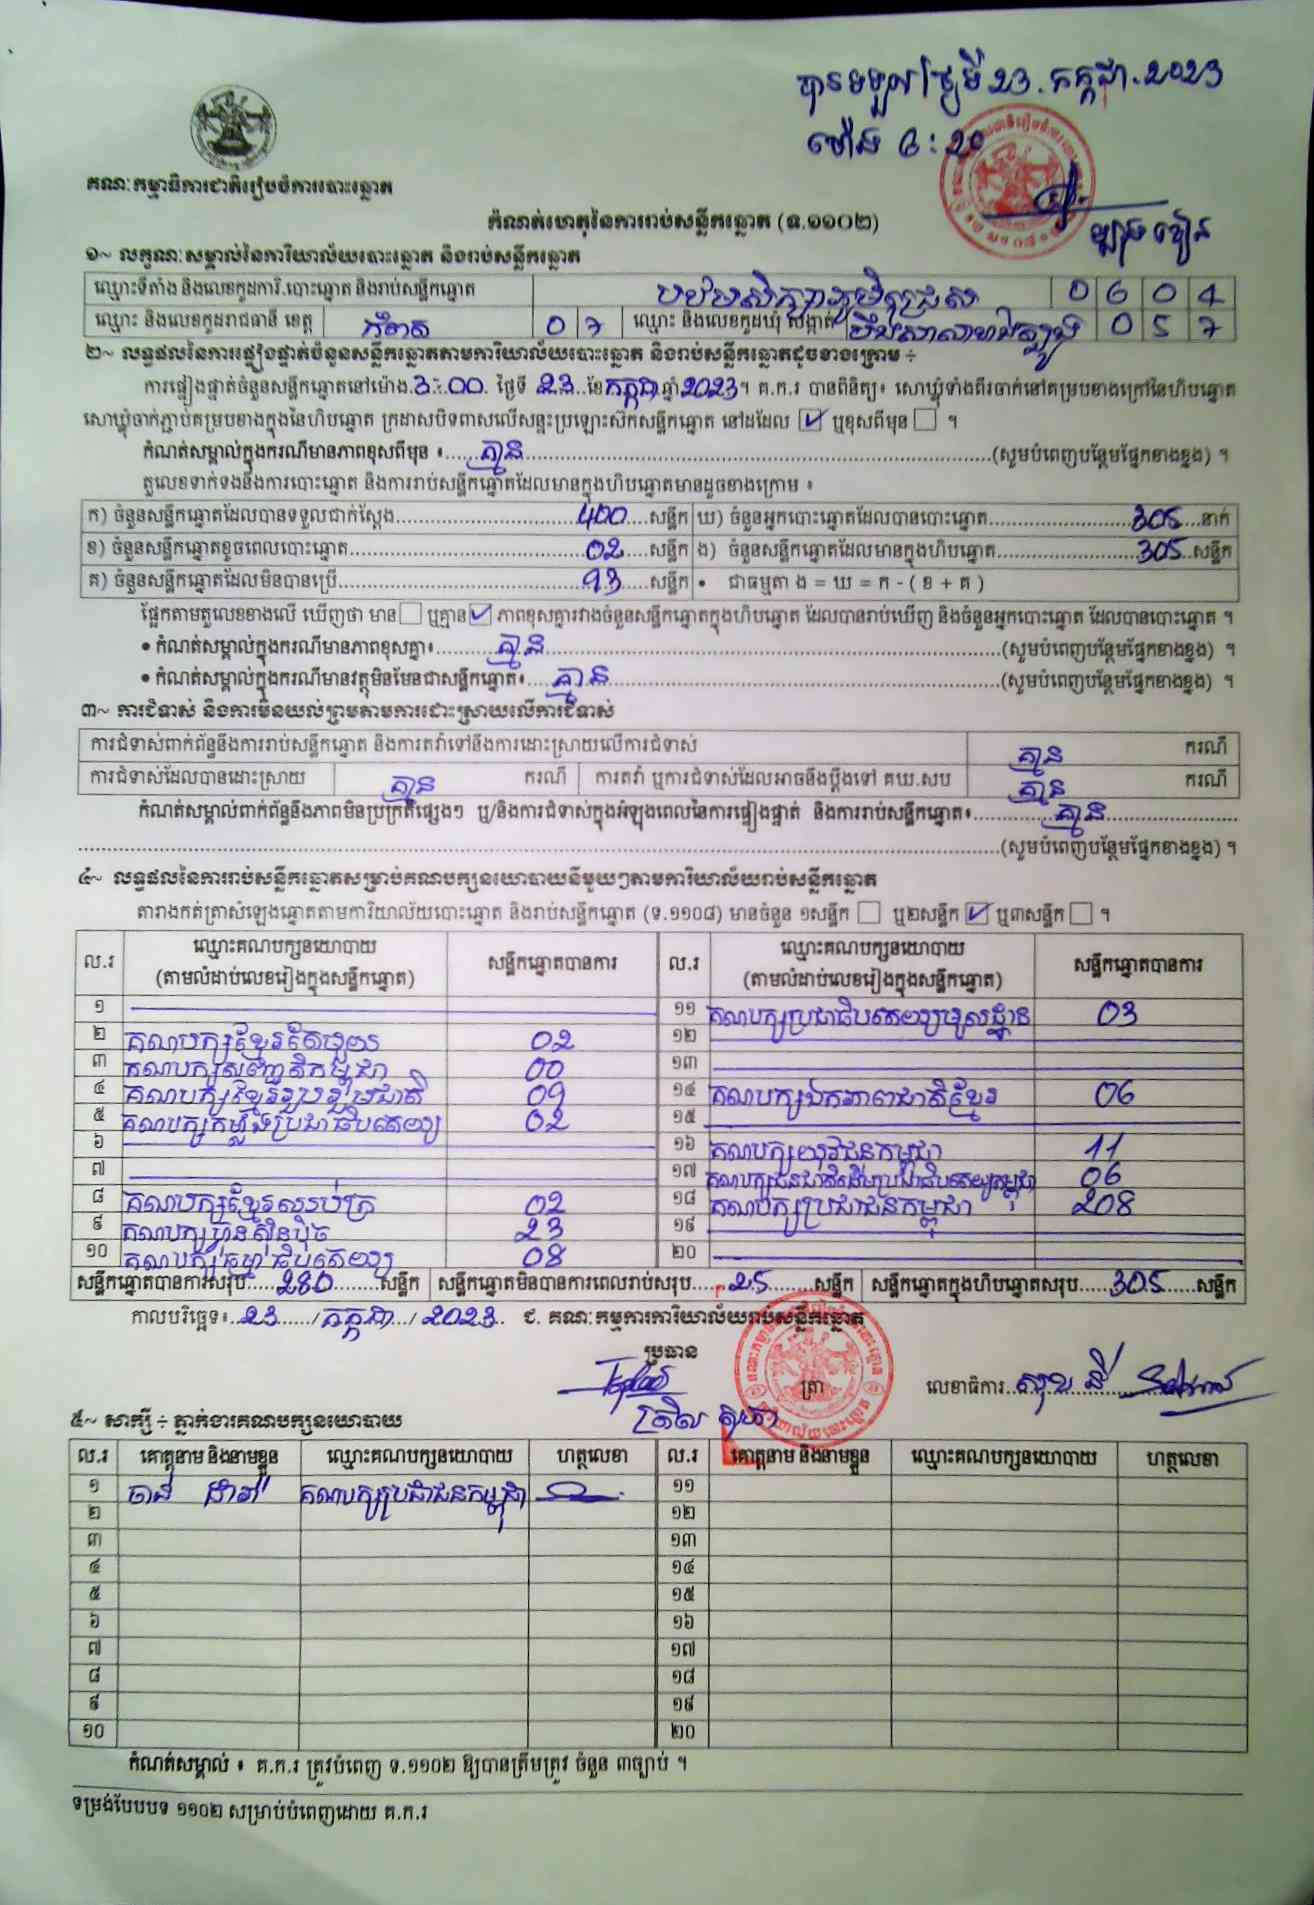 បានទទួល ថ្ងៃទី 23. កក្កដា. 2023
ម៉ោង 6 : 20
គណៈកម្មាធិការជាតិរៀបចំការបោះឆ្នោត
កំណត់ហេតុនៃការរាប់សន្លឹកឆ្នោត (ទ.១១០២)
១~ លក្ខណៈសម្គាល់នៃការិយាល័យបោះឆ្នោត និងរាប់សន្លឹកឆ្នោត
ឈ្មោះទីតាំង និងលេខកូដការិ.បោះឆ្នោត និងរាប់សន្លឹកឆ្នោត 0 6 0 4
ឈ្មោះ និងលេខកូដរាជធានី ខេត្ត កំពត 0 7 ឈ្មោះ និងលេខកូដឃុំ សង្កាត់ 0 5 7
២~ លទ្ធផលនៃការផ្ទៀងផ្ទាត់ចំនួនសន្លឹកឆ្នោតតាមការិយាល័យបោះឆ្នោត និងរាប់សន្លឹកឆ្នោតដូចខាងក្រោម ÷
ការផ្ទៀងផ្ទាត់ចំនួនសន្លឹកឆ្នោតនៅម៉ោង 3:00 ថ្ងៃទី 23 ខែ កក្កដា ឆ្នាំ 2023 ។ គ.ក.រ បានពិនិត្យ៖ សោឃ្លុំទាំងពីរចាក់នៅគម្របខាងក្រៅនៃហិបឆ្នោត
សោឃ្លុំចាក់ភ្ជាប់គម្របខាងក្នុងនៃហិបឆ្នោត ក្រដាសបិទពាសលើសន្ទះប្រឡោះស៊កសន្លឹកឆ្នោត នៅដដែល ☑ ឬខុសពីមុន ☐ ។
កំណត់សម្គាល់ក្នុងករណីមានភាពខុសពីមុន ៖ គ្មាន (សូមបំពេញបន្ថែមផ្នែកខាងខ្នង) ។
តួលេខទាក់ទងនឹងការបោះឆ្នោត និងការរាប់សន្លឹកឆ្នោតដែលមានក្នុងហិបឆ្នោតមានដូចខាងក្រោម ៖
ក) ចំនួនសន្លឹកឆ្នោតដែលបានទទួលជាក់ស្តែង 400 សន្លឹក ឃ) ចំនួនអ្នកបោះឆ្នោតដែលបានបោះឆ្នោត 305 នាក់
ខ) ចំនួនសន្លឹកឆ្នោតខូចពេលបោះឆ្នោត 02 សន្លឹក ង) ចំនួនសន្លឹកឆ្នោតដែលមានក្នុងហិបឆ្នោត 305 សន្លឹក
គ) ចំនួនសន្លឹកឆ្នោតដែលមិនបានប្រើ 93 សន្លឹក • ជាធម្មតា ង = ឃ = ក - ( ខ + គ )
ផ្អែកតាមតួលេខខាងលើ ឃើញថា មាន ☐ ឬគ្មាន ☑ ភាពខុសគ្នារវាងចំនួនសន្លឹកឆ្នោតក្នុងហិបឆ្នោត ដែលបានរាប់ឃើញ និងចំនួនអ្នកបោះឆ្នោត ដែលបានបោះឆ្នោត ។
• កំណត់សម្គាល់ក្នុងករណីមានភាពខុសគ្នា៖ គ្មាន (សូមបំពេញបន្ថែមផ្នែកខាងខ្នង) ។
• កំណត់សម្គាល់ក្នុងករណីមានវត្ថុមិនមែនជាសន្លឹកឆ្នោត៖ គ្មាន (សូមបំពេញបន្ថែមផ្នែកខាងខ្នង) ។
៣~ ការជំទាស់ និងការមិនយល់ព្រមតាមការដោះស្រាយលើការជំទាស់
ការជំទាស់ពាក់ព័ន្ធនឹងការរាប់សន្លឹកឆ្នោត និងការតវ៉ាទៅនឹងការដោះស្រាយលើការជំទាស់ គ្មាន ករណី
ការជំទាស់ដែលបានដោះស្រាយ គ្មាន ករណី ការតវ៉ា ឬការជំទាស់ដែលអាចនឹងប្តឹងទៅ គឃ.សប គ្មាន ករណី
កំណត់សម្គាល់ពាក់ព័ន្ធនឹងភាពមិនប្រក្រតីផ្សេងៗ ឬ/និងការជំទាស់ក្នុងអំឡុងពេលនៃការផ្ទៀងផ្ទាត់ និងការរាប់សន្លឹកឆ្នោត៖ គ្មាន
(សូមបំពេញបន្ថែមផ្នែកខាងខ្នង) ។
៤~ លទ្ធផលនៃការរាប់សន្លឹកឆ្នោតសម្រាប់គណបក្សនយោបាយនីមួយៗតាមការិយាល័យរាប់សន្លឹកឆ្នោត
តារាងកត់ត្រាសំឡេងឆ្នោតតាមការិយាល័យបោះឆ្នោត និងរាប់សន្លឹកឆ្នោត (ទ.១១០៨) មានចំនួន ១សន្លឹក ☐ ឬ២សន្លឹក ☑ ឬ៣សន្លឹក ☐ ។
ល.រ ឈ្មោះគណបក្សនយោបាយ (តាមលំដាប់លេខរៀងក្នុងសន្លឹកឆ្នោត) សន្លឹកឆ្នោតបានការ ល.រ ឈ្មោះគណបក្សនយោបាយ (តាមលំដាប់លេខរៀងក្នុងសន្លឹកឆ្នោត) សន្លឹកឆ្នោតបានការ
១ ១១ គណបក្សប្រជាធិបតេយ្យមូលដ្ឋាន 03
២ គណបក្សខ្មែរតែមួយ 02 ១២
៣ គណបក្សសញ្ជាតិកម្ពុជា 00 ១៣
៤ គណបក្សខ្មែររួបរួមជាតិ 09 ១៤ គណបក្សឯកភាពជាតិខ្មែរ 06
៥ គណបក្សកម្លាំងប្រជាធិបតេយ្យ 02 ១៥
៦ ១៦ គណបក្សយុវជនកម្ពុជា 11
៧ ១៧ គណបក្សជនជាតិដើមប្រជាធិបតេយ្យកម្ពុជា 06
៨ គណបក្សខ្មែរឈប់ក្រ 02 ១៨ គណបក្សប្រជាជនកម្ពុជា 208
៩ គណបក្សហ្វ៊ុនស៊ិនប៉ិច 23 ១៩
១០ គណបក្សធម្មាធិបតេយ្យ 08 ២០
សន្លឹកឆ្នោតបានការសរុប 280 សន្លឹក សន្លឹកឆ្នោតមិនបានការពេលរាប់សរុប 25 សន្លឹក សន្លឹកឆ្នោតក្នុងហិបឆ្នោតសរុប 305 សន្លឹក
កាលបរិច្ឆេទ៖ 23 / កក្កដា / 2023 ជ. គណៈកម្មការការិយាល័យរាប់សន្លឹកឆ្នោត
ប្រធាន
ត្រា លេខាធិការ
៥~ សាក្សី ÷ ភ្នាក់ងារគណបក្សនយោបាយ
ល.រ គោត្តនាម និងនាមខ្លួន ឈ្មោះគណបក្សនយោបាយ ហត្ថលេខា ល.រ គោត្តនាម និងនាមខ្លួន ឈ្មោះគណបក្សនយោបាយ ហត្ថលេខា
១ គណបក្សប្រជាជនកម្ពុជា ១១
២ ១២
៣ ១៣
៤ ១៤
៥ ១៥
៦ ១៦
៧ ១៧
៨ ១៨
៩ ១៩
១០ ២០
កំណត់សម្គាល់ ៖ គ.ក.រ ត្រូវបំពេញ ទ.១១០២ ឱ្យបានត្រឹមត្រូវ ចំនួន ៣ច្បាប់ ។
ទម្រង់បែបបទ ១១០២ សម្រាប់បំពេញដោយ គ.ក.រ